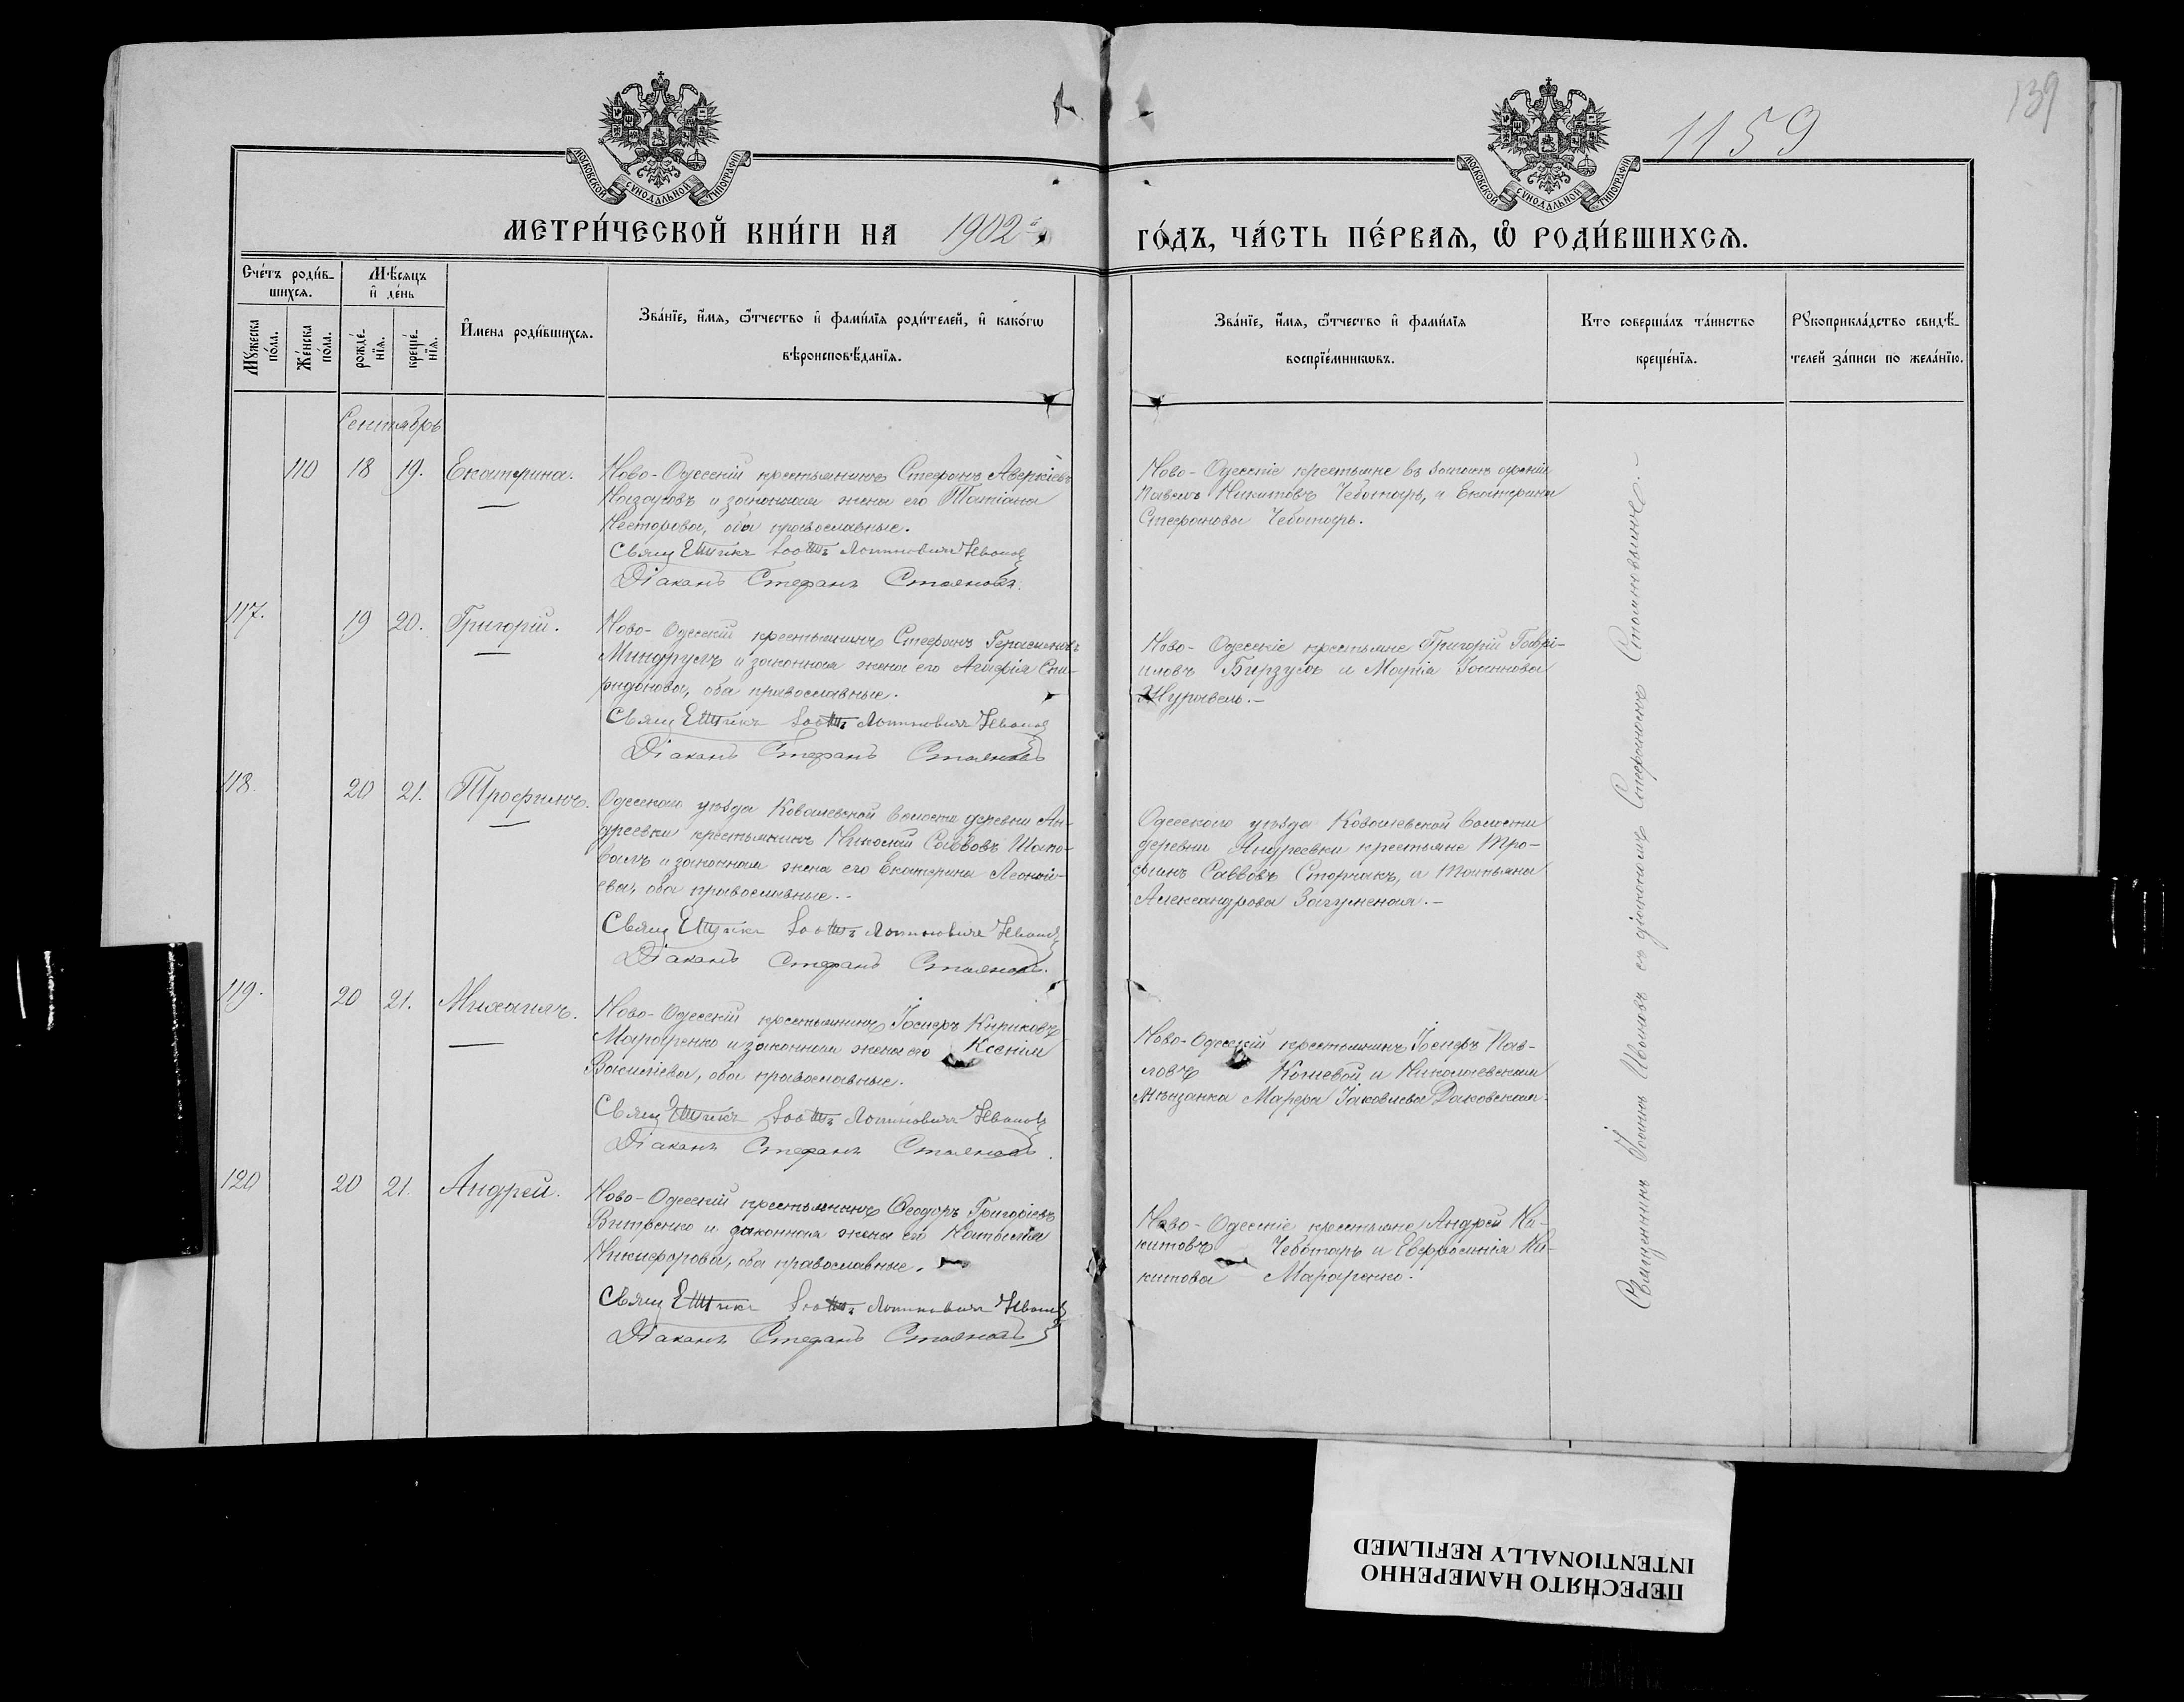 139
1159
МОСКОВСКОЙ СѴНОДАЛЬНОЙ ТИПОГРАФІИ
МОСКОВСКОЙ СѴНОДАЛЬНОЙ ТИПОГРАФІИ
МЕТРИ́ЧЕСКОЙ КНИ́ГИ НА 1902й
ГО́ДЪ, ЧА́СТЬ ПЕ́РВАѦ, Ѽ РОДИ́ВШИХСѦ.
Сче́тъ роди́в-
шихсѧ.
Мѣ́сѧцъ
и҆ де́нь
Мꙋ́жеска
по́ла.
Же́нска
по́ла.
рожде́-
нїѧ.
креще́-
нїѧ.
И҆мена роди́вшихсѧ.
Зва́нїе, и҆́мѧ, ѻ҆́тчество и҆ фами́лїѧ роди́телей, и҆ како́гѡ
вѣроисповѣ́данїѧ.
Зва́нїе, и҆́мѧ, ѻ҆́тчество и҆ фами́лїѧ
воспрїе́мникѡвъ.
Кто соверша́лъ та́инство
креще́нїѧ.
Рꙋкоприкла́дство свидѣ́-
телей за́писи по жела́нїю.
Сентябрь
110 18 19. Екатерина.
Ново-Одесскій крестьянинъ Стефанъ Аверкіевъ
Назаровъ и законная жена его Татіана
Несторова, оба православные.
Свящ Іоаннъ Ивановъ
Діаконъ Стефанъ Стояновъ.
Ново-Одесскіе крестьяне
Павелъ Никитовъ Чеботарь, и Екатерина
Стефанова Чеботарь.
117. 19 20. Григорій.
Ново-Одесскій крестьянинъ Стефанъ Герасимовъ
Миндрулъ и законная жена его Агафія Спи-
ридонова, оба православные.
Свящ Ивановъ
Діаконъ Стефанъ Стояновъ
Ново-Одесскіе крестьяне Григорій Гаврі-
иловъ Бирзулъ и Марія Іоаннова
Журавель.-
118. 20 21. Трофимъ.
Одесскаго уѣзда Ковалевской волости деревни Ан-
дреевки крестьянинъ Николай Саввовъ Шапо-
валъ и законная жена его Екатерина Леонті-
ева, оба православные.-
Свящ Ивановъ
Діаконъ Стефанъ Стояновъ.
Одесскаго уѣзда Ковалевской волости
деревни Андреевки крестьяне Тро-
фимъ Саввовъ Сторчакъ, и Татьяна
Александрова Загуменная.-
119. 20 21. Михаилъ.
Ново-Одесскій крестьянинъ Іосифъ Кириковъ
Мараренко и законная жена его Ксенія
Василіева, оба православные.
Свящ Ивановъ
Діаконъ Стефанъ Стояновъ.
Ново-Одесскій крестьянинъ Іосифъ Пав-
ловъ Кошевой и Николаевская
мѣщанка Марфа Іаковлева Даковская.
120 20 21. Андрей.
Ново-Одесскій крестьянинъ Ѳеодоръ Григоріевъ
Витренко и законная жена его Наталія
Никифорова, оба православные.
Свящ Ивановъ
Діаконъ Стефанъ Стояновъ
Ново-Одесскіе крестьяне Андрей Ни-
китовъ Чеботарь и Евфросинія Ни-
китова Мараренко.
Священникъ Іоаннъ Ивановъ съ діакономъ Стефаномъ Стояновымъ.-
ПЕРЕСНЯТО НАМЕРЕННО
INTENTIONALLY REFILMED